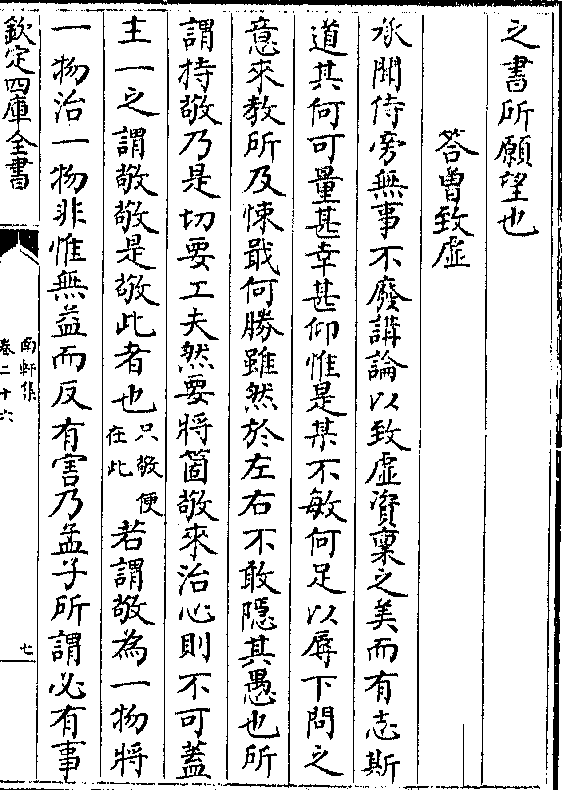 之書所願望也
答曾致虛
承聞侍旁無事不廢講論以致虛資稟之美而有志斯
道其何可量甚幸甚仰惟是某不敏何足以辱下問之
意來教所及悚戢何勝雖然於左右不敢隱其愚也所
謂持敬乃是切要工夫然要將箇敬來治心則不可蓋
主一之謂敬敬是敬此者也只敬便在此若謂敬為一物將
一物治一物非惟無益而反有害乃孟子所謂必有事
欽定四庫全書
南軒集
卷二十六
七